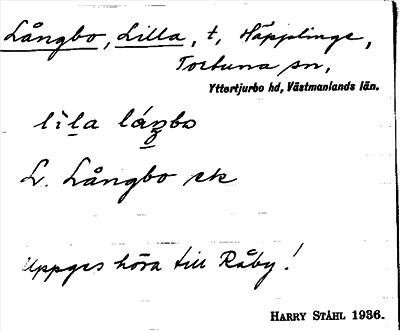 Långbo, Lilla, t, Häpplinge,
Tortuna sn,
Yttertjurbo hd, Västmanlands län.
lìla láŋbo
L. Långbo ek
Uppges höra till Råby!
HARRY STÅHL 1936.